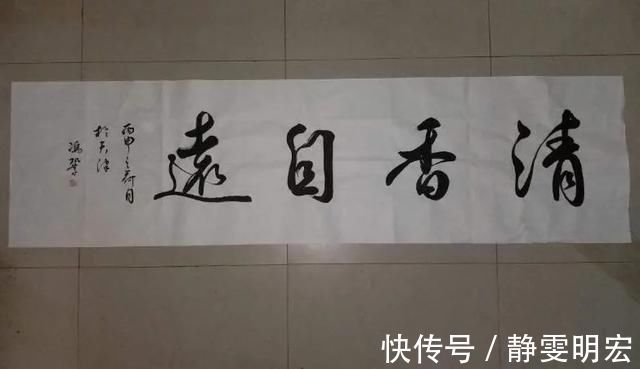 清香自遠
丙申之月
於天津
馮
快传号 / 静雯明宏